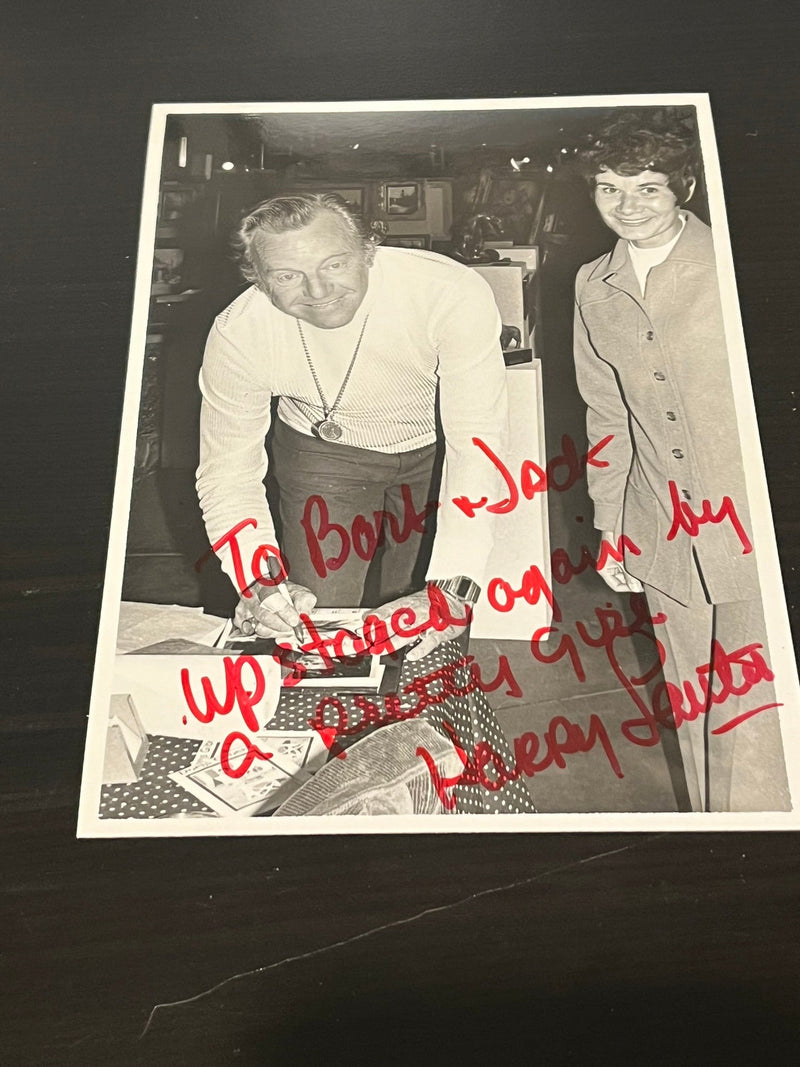 To Bart + Jack
upstaged again by
a pretty girl
Harry